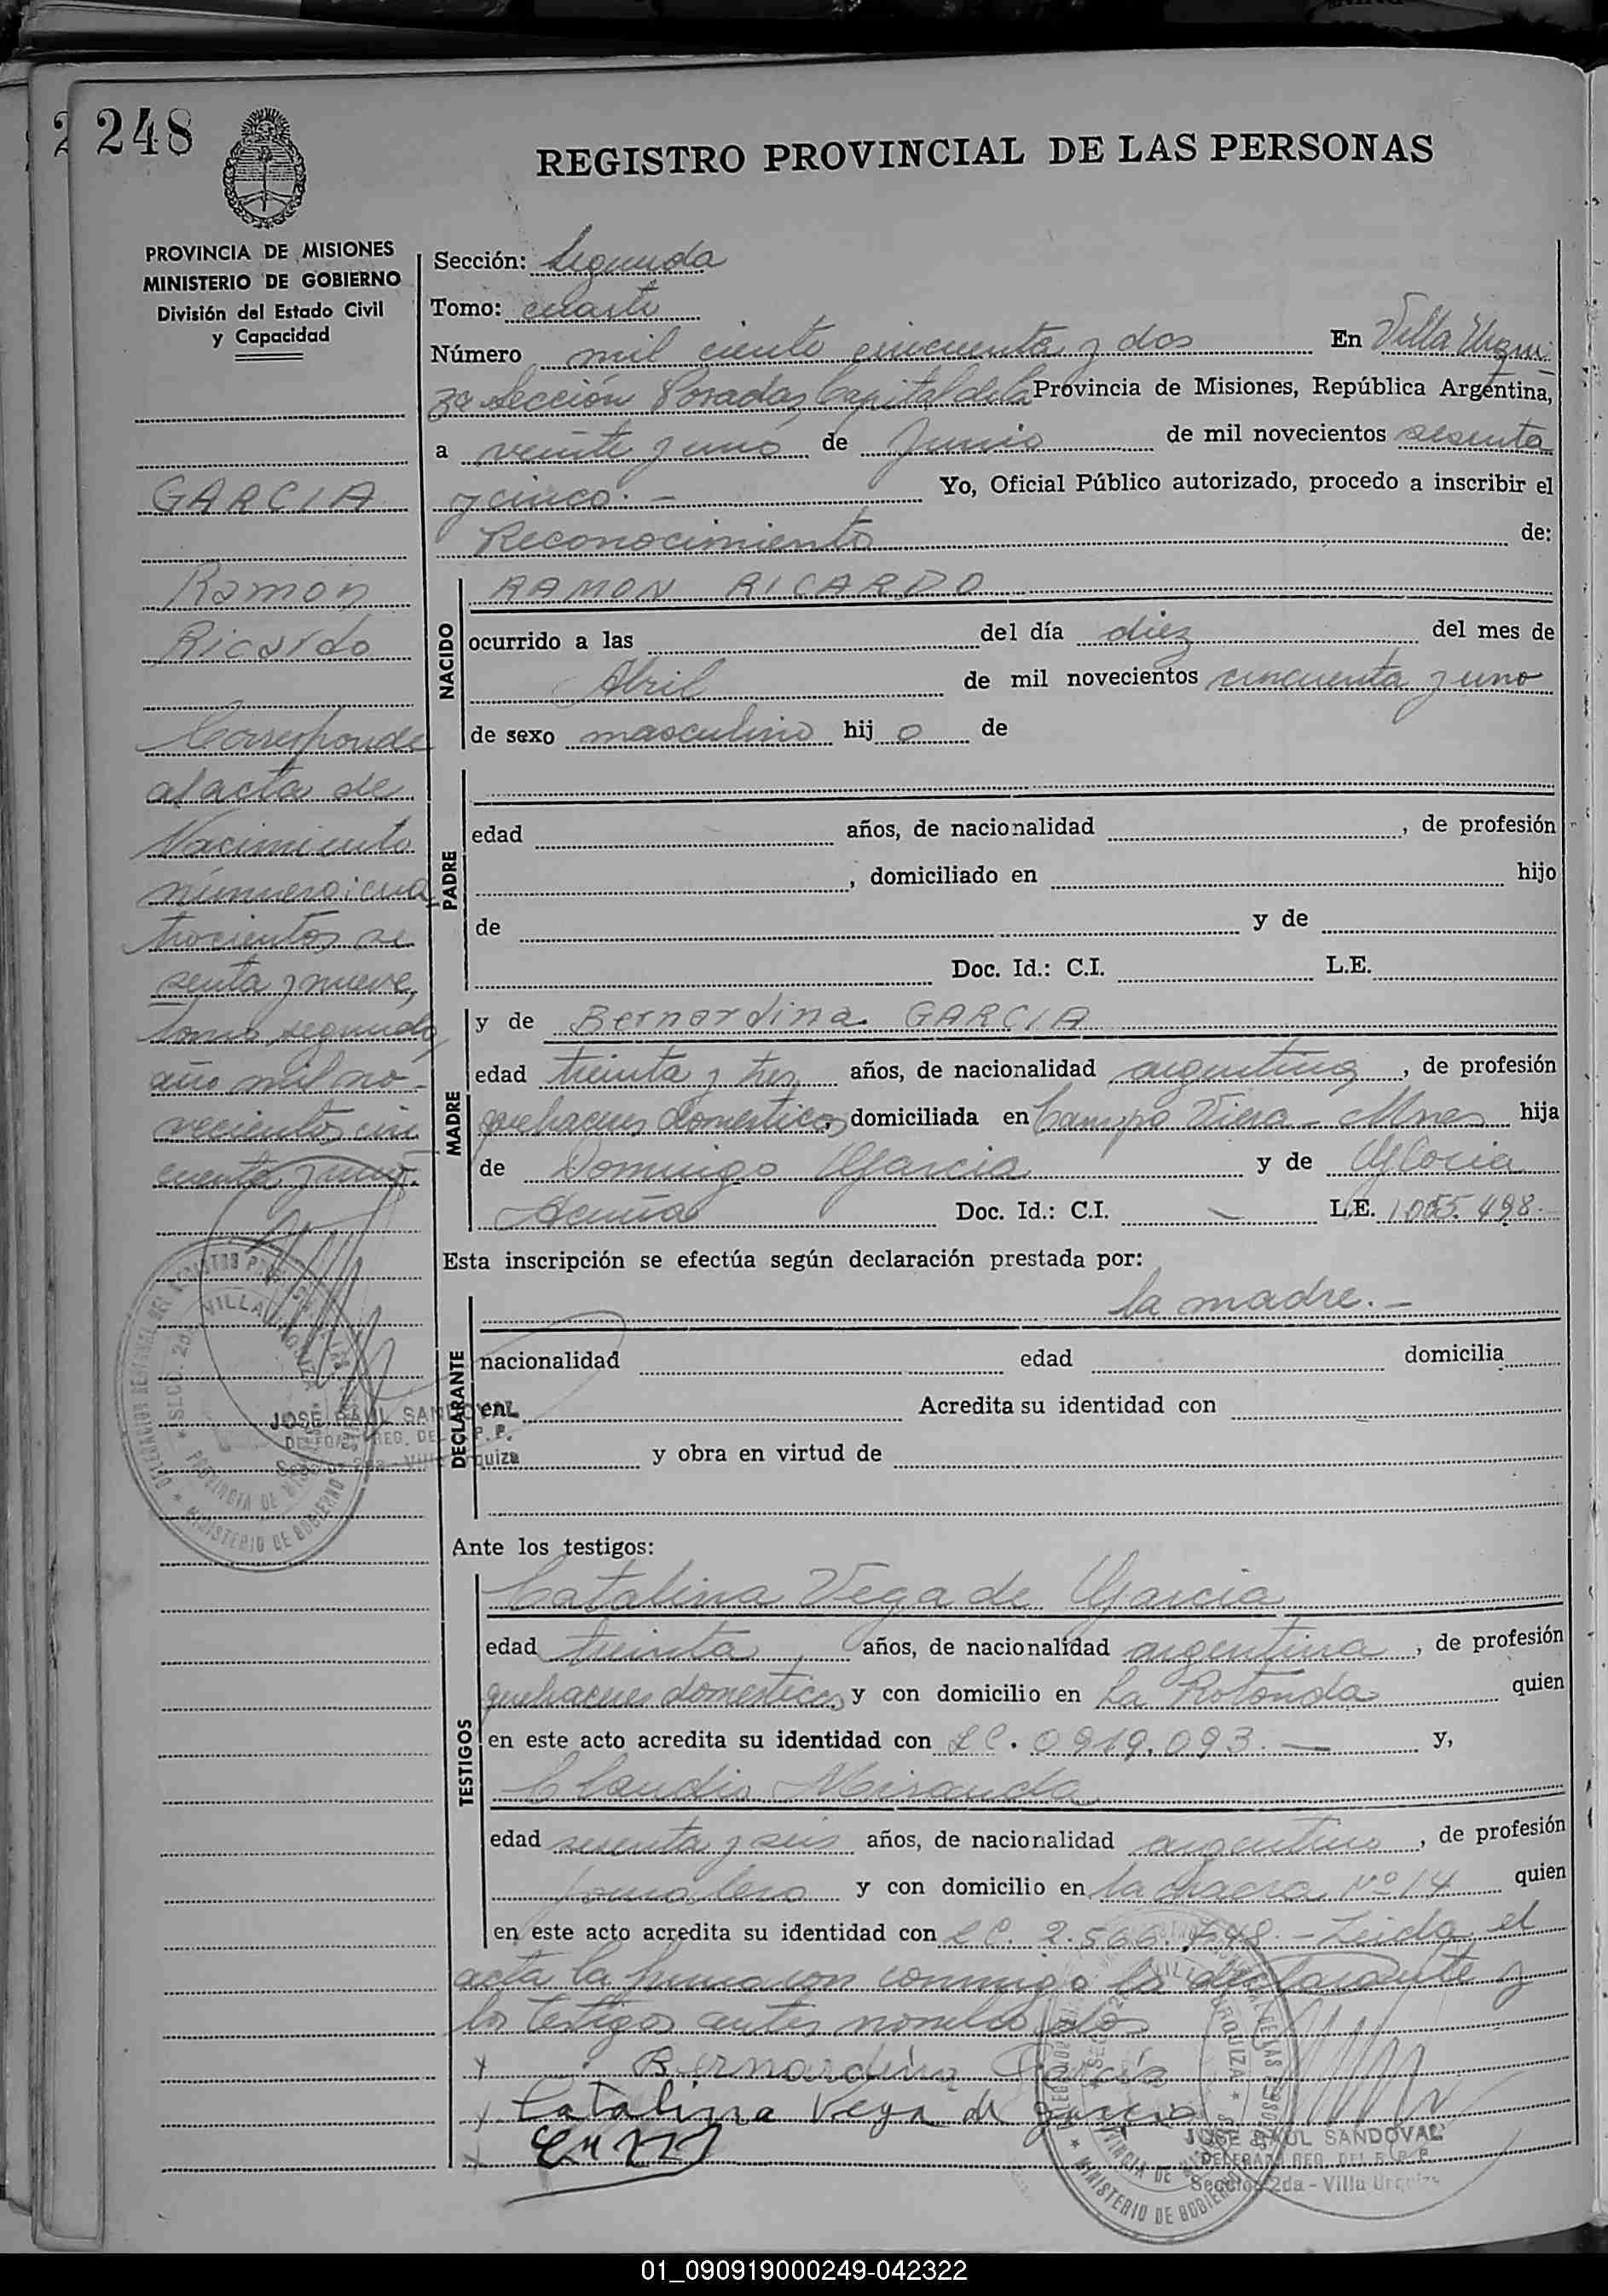 248
REGISTRO PROVINCIAL DE LAS PERSONAS
PROVINCIA DE MISIONES
MINISTERIO DE GOBIERNO
División del Estado Civil
y Capacidad
GARCIA
Ramon
Ricardo
Corresponde
al acta de
Nacimiento
número: cua
trocientos se
senta y nueve,
tomo segundo,
año mil no-
vecientos cin
cuenta y uno.
Sección: Segunda
Tomo: cuarto
Número mil ciento cincuenta y dos En Villa Urqui
za Sección Posadas, Capital de la Provincia de Misiones, República Argentina,
a veinte y uno de Junio de mil novecientos sesenta
y cinco.- Yo, Oficial Público autorizado, procedo a inscribir el
Reconocimiento de:
NACIDO
RAMON RICARDO
ocurrido a las del día diez del mes de
Abril de mil novecientos cincuenta y uno
de sexo masculino hij o de
PADRE
edad años, de nacionalidad , de profesión
, domiciliado en hijo
de y de
Doc. Id.: C.I. L.E.
MADRE
y de Bernardina GARCIA
edad treinta y tres años, de nacionalidad argentina, de profesión
quehaceres domesticos domiciliada en Campo Viera - Mnes hija
de Domingo Garcia y de Gloria
Acuña Doc. Id.: C.I. - L.E. 1.055.498.-
Esta inscripción se efectúa según declaración prestada por:
DECLARANTE
la madre.-
nacionalidad edad domicilia
en Acredita su identidad con
y obra en virtud de
JOSE RAUL SANDOVAL
DELEGADO REG. DEL R. P. P.
Sección 2da - Villa Urquiza
Ante los testigos:
TESTIGOS
Catalina Vega de Garcia
edad treinta años, de nacionalidad argentina, de profesión
quehaceres domesticos y con domicilio en La Rotonda quien
en este acto acredita su identidad con LC. 0919.093.- y,
Claudio Miranda
edad sesenta y seis años, de nacionalidad argentino, de profesión
jornalero y con domicilio en la chacra Nº 14 quien
en este acto acredita su identidad con 2.566. - Leida el
acta la firman conmigo la declarante y
los testigos antes nombrados
x Bernardina Garcia
x Catalina Vega de garcia
x
JOSE RAUL SANDOVAL
DELEGADO REG. DEL R. P. P.
Sección 2da - Villa Urquiza
01_090919000249-042322